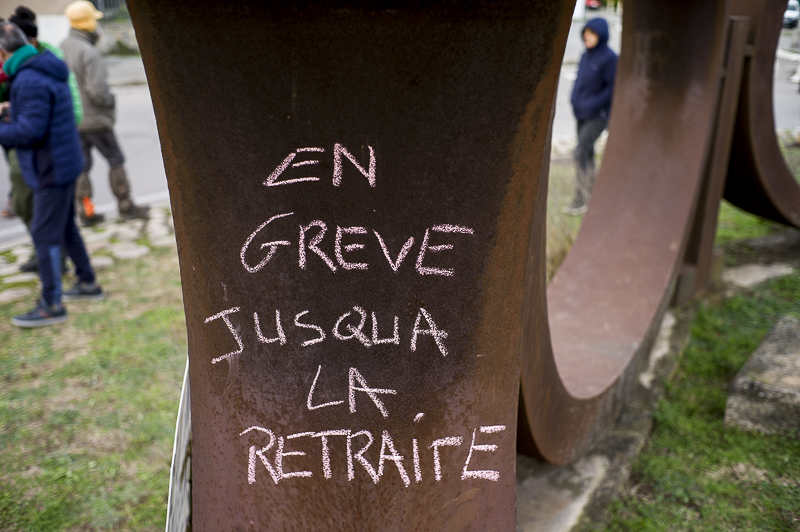 EN
GREVE
JUSQUA
LA
RETRAiTE